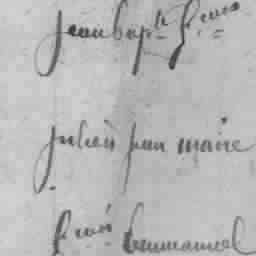 jean bapte f.cois
julien jean marie
f.cois Emmanuel